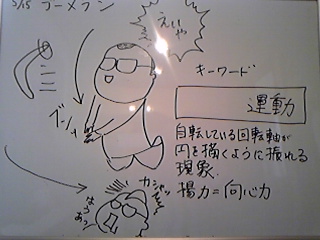 5/15 ブーメラン
えいや
キーワード
運動
ブーン
自転している回転軸が
円を描くように振れる
現象.
揚力=向心力
カシャッ